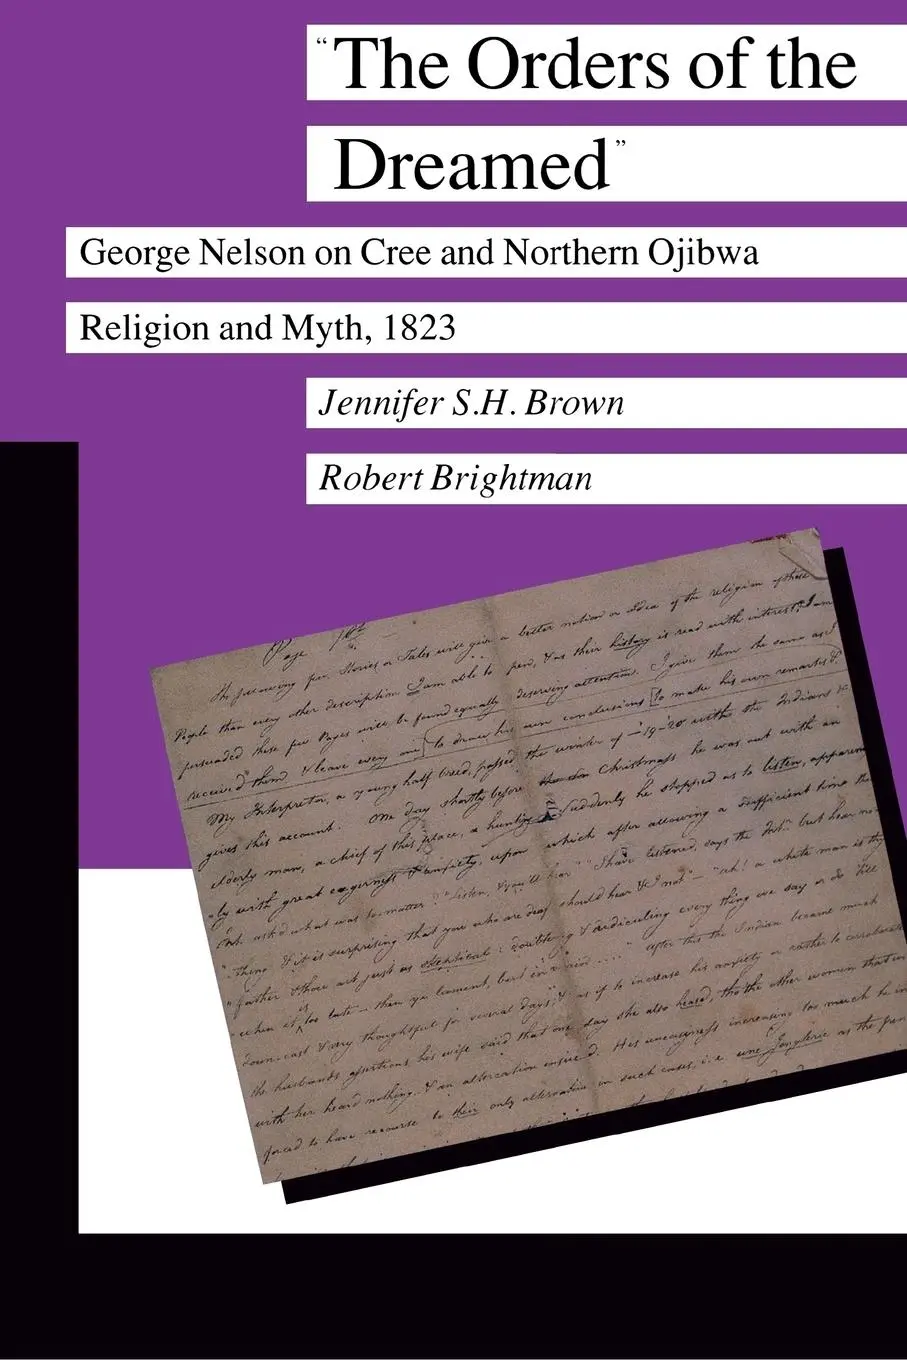 “The Orders of the
Dreamed”
George Nelson on Cree and Northern Ojibwa
Religion and Myth, 1823
Jennifer S.H. Brown
Robert Brightman
Page 1st
The following few Stories or Tales will give a better notion or Idea of the religion of these
People than every other description I am able to pen, & as their history is read with interest I am
persuaded these few Pages will be found equally deserving attention. I give them the same as I
received them & leave every one to draw his own conclusions to make his own remarks &c
My Interpreter, a young half breed, passed the winter of -19-20 with the Indians &
gives this account. One day shortly before Christmass he was out with an
elderly man, a chief of this place, a hunting suddenly he stopped as to listen, apparent
ly with great eagerness & anxiety, upon which after allowing a sufficient time the
Int. asked what was the matter? "Listen, & you'll hear" "I have listened, says the Intr. but hear no
thing & it is surprising that you who are deaf should hear & I not" - "ah! a white man is thy
father & those are just as skeptical; doubting & ridiculing every thing we say or do till
when it is too late - then ye lament, but in vain ...." After this the Indian became much
down-cast & very thoughtful for several days; & as if to increase his anxiety or rather to corroborate
the husbands assertions, his wife said that one day she also heard, tho the other women that
with her heard nothing, & an altercation ensued. His uneasiness increasing too much he
forced to have recourse to their only alternative in such cases, i.e. une Jonglerie as the